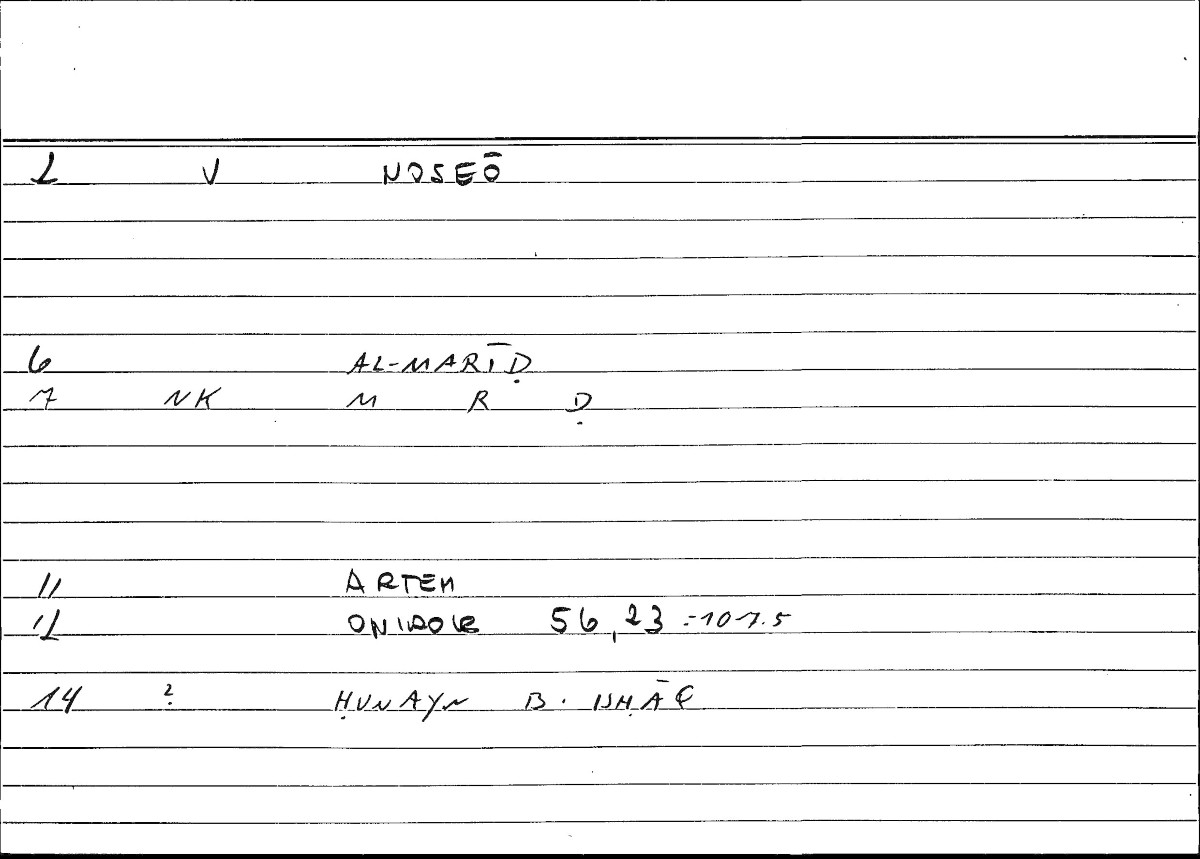 2 V NOSEŌ
6 AL-MARĪḌ
7 NK M R Ḍ
11 ARTEM
12 ONIROCR 56,23 = 107.5
14 ? ḤUNAYN B. ISḤĀQ